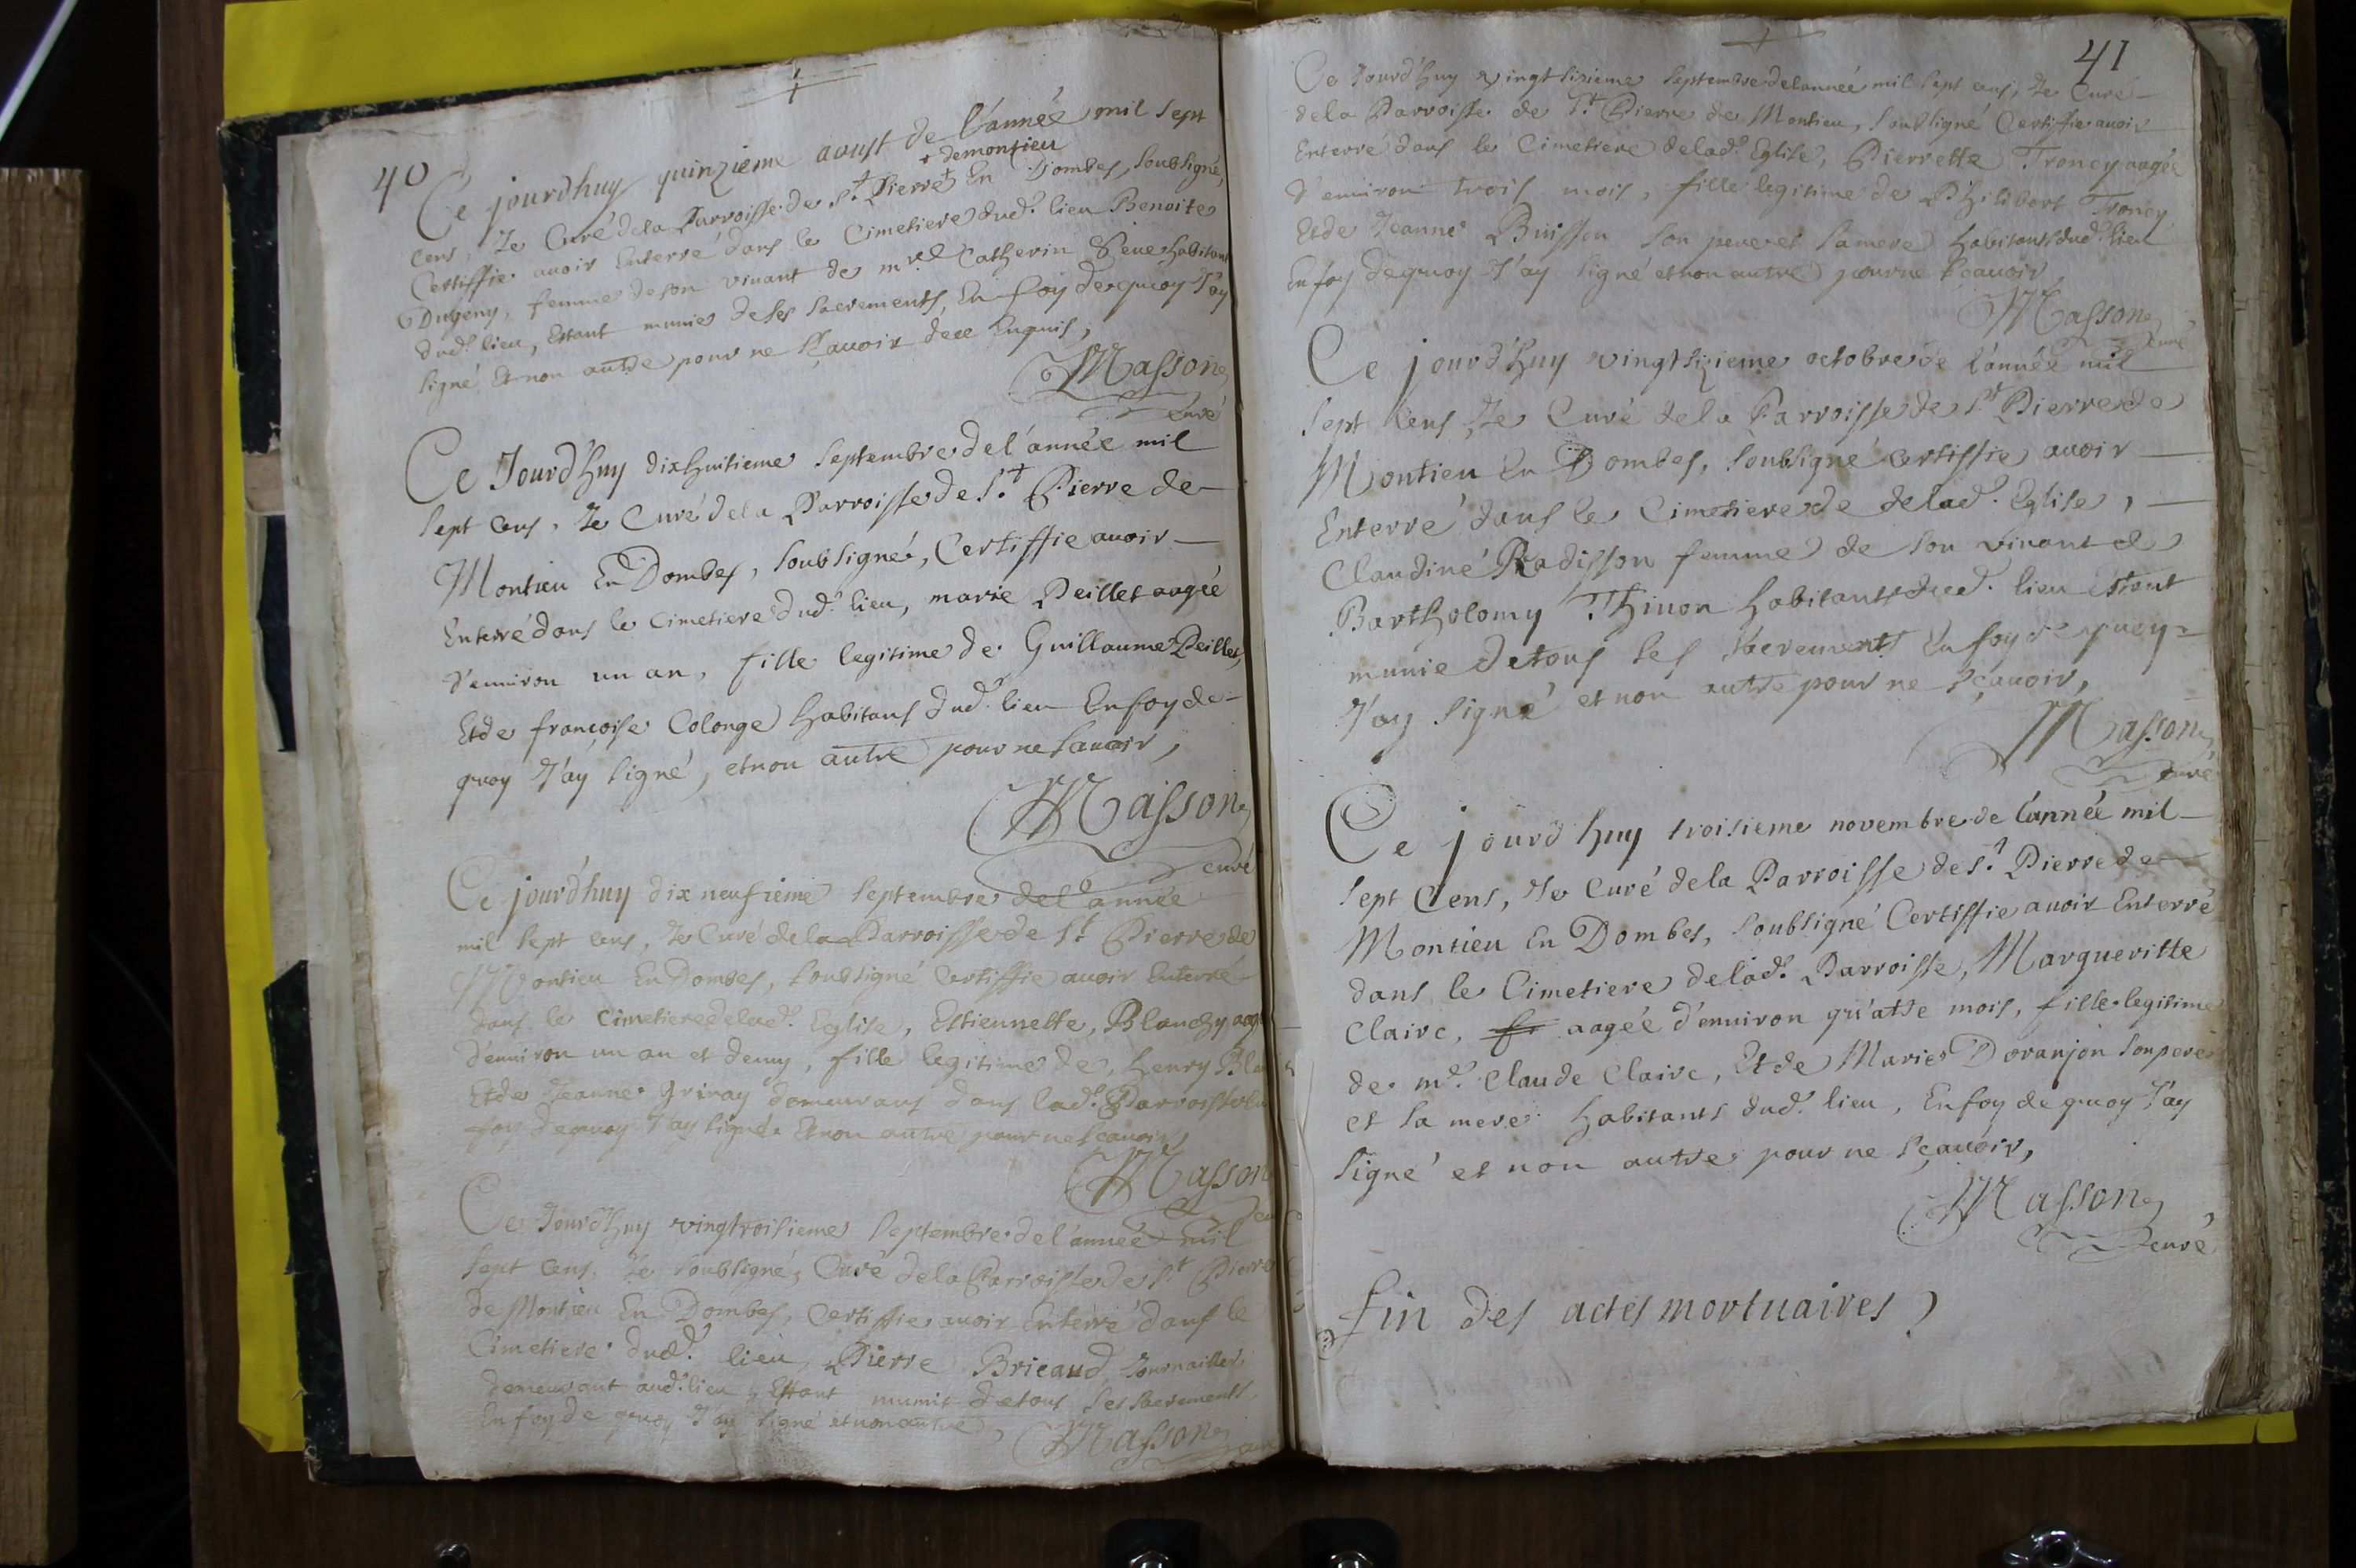 40
Ce jourdhuy quinzieme aoust de l'année mil sept
+ demontieu
cens, Je Curé dela Parroisse de St. Pierre + En Dombes, soubsigné,
Certiffie avoir Enterré dans le Cimetiere dud.t lieu Benoite
Dugeny, femme deson vivant de Catherin habitant
dud.t lieu, Estant munie de ses sacrements, En foy dequoy J'ay
signé Et non autre pour ne sçavoir dece Enquis,
Masson
curé
Ce Jourd'huy dixhuitieme septembre de l'année mil
sept cens, Je Curé dela Parroisse de St. Pierre de
Montieu En Dombes, soubsigné, Certiffie avoir
Enterré dans le Cimetiere dud.t lieu, marie Peillet aagée
d'environ un an, fille legitime de Guillaume Peillet,
Et de françoise Colonge habitans dud.t lieu En foy de
quoy J'ay signé, et non autre pour ne savoir,
Masson
curé
Ce jourd'huy dix neufieme septembre de l'année
mil sept cens, Je Curé dela Parroisse de St. Pierre de
Montieu En Dombes, soubsigné Certiffie avoir Enterré
dans le Cimetiere delad.te Eglise, Estiennette, Blanchy aag
d'environ un an et demy, fille legitime de, henry Bla
Et de Jeanne Grinay demeurans dans lad.te Parroisse En
foy dequoy J'ay signé Et non autre pour ne sçavoir
Masson
cu
Ce Jourd'huy vingtroisieme septembre de l'année mil
sept cens, Je soubsigné, Curé dela Parroisse de St. Pierre
de Montieu En Dombes, Certiffie avoir Enterré dans le
Cimetiere dud.t lieu, Pierre Bricaud, Journaillier
demeurant aud.t lieu, Estant munit de tous ses sacrements
En foy de quoy J'ay signé et non autre,
Masson
41
Ce Jourd'huy vingt sixieme septembre de l'année mil sept cens, Je Curé
dela Parroisse de St. Pierre de Montieu, soubsigné Certiffie avoir
Enterré dans le Cimetiere delad.te Eglise, Pierrette Troncy aagée
d'environ trois mois, fille legitime de Philibert Troncy
Et de Jeanne Buisson son pere et sa mere habitants dud.t lieu
En foy dequoy J'ay signé et non autre pour ne sçavoir
Masson
curé
Ce jourd'huy vingtsixieme octobre de l'année mil
sept cens, Je Curé dela Parroisse de St. Pierre de
Montieu En Dombes, soubsigné certiffie avoir
Enterré dans le Cimetiere de delad.te Eglise,
Claudine Radisson femme de son vivant de
Bartholomy Thinon habitants dud.t lieu estant
munie de tous ses sacrements En foy de quoy
J'ay signé et non autre pour ne sçavoir,
Masson,
curé
Ce jourd'huy troisieme novembre de l'année mil
sept Cens, Je Curé dela Parroisse de St. Pierre de
Montieu En Dombes, soubsigné Certiffie avoir Enterré
dans le Cimetiere delad.te Parroisse, Margueritte
Claire, aagée d'environ qu'atre mois, fille legitime
de m.e Claude Claire, Et de Marie Doranjon son pere
et sa mere habitants dud.t lieu, En foy de quoy J'ay
signé et non autre pour ne sçavoir,
Masson
curé
fin des actes mortuaires